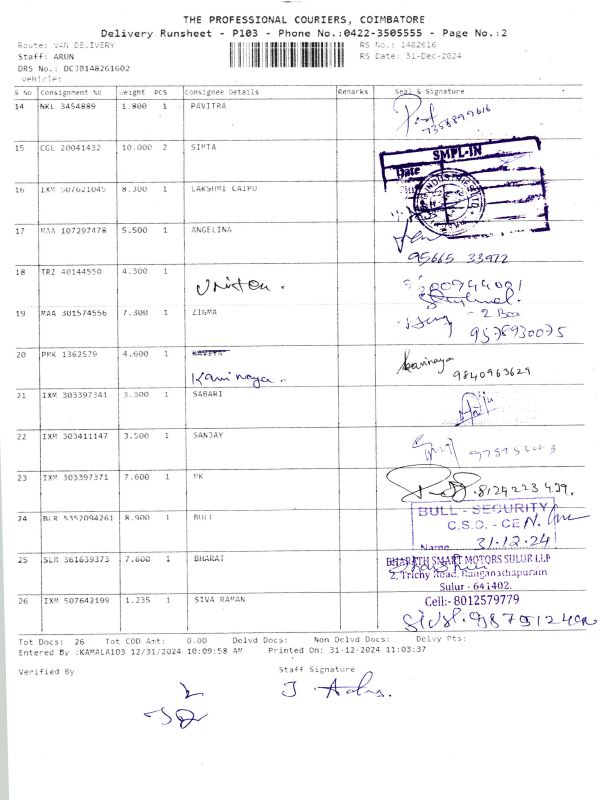 THE PROFESSIONAL COURIERS, COIMBATORE
Delivery Runsheet - P103 - Phone No.:0422-3505555 - Page No.:2
Route: VAN DELIVERY RS No.: 1482616
Staff: ARUN RS Date: 31-Dec-2024
DRS No.: DCJB148261602
Vehicle:
S No Consignment No Weight PCS Consignee Details Remarks Seal & Signature
14 NKL 3454889 1.800 1 PAVITRA
7358899616
15 CGL 20041432 10.000 2 SIMTA
SMPL-IN
Date
16 IXM 507621045 8.300 1 LAKSHMI CAIPO
17 MAA 107297478 5.500 1 ANGELINA
95665 33972
18 TRZ 40144550 4.300 1
Uniton.
19 MAA 301574556 7.300 1 ZIGMA
- 2 Box
9578930075
20 PMK 1362579 4.600 1 KAVIYA
Kavinaya. Kavinaya
9840963629
21 IXM 303397341 3.300 1 SABARI
22 IXM 303411147 3.500 1 SANJAY
23 IXM 303397371 7.600 1 MK
8124223439.
24 BLR 5352094261 8.900 1 BULL
BULL - SECURITY
C.S.O. - CE
Name 31.12.24
25 SLM 361639373 7.600 1 BHARAT
BHARATH SMART MOTORS SULUR LLP
2, Trichy Road, Ranganathapuram
Sulur - 641402.
Cell:- 8012579779
26 IXM 507642199 1.235 1 SIVA RAMAN
Tot Docs: 26 Tot COD Amt: 0.00 Delvd Docs: Non Dclvd Docs: Delvy Pts:
Entered By :KAMALA103 12/31/2024 10:09:58 AM Printed On: 31-12-2024 11:03:37
Verified By Staff Signature